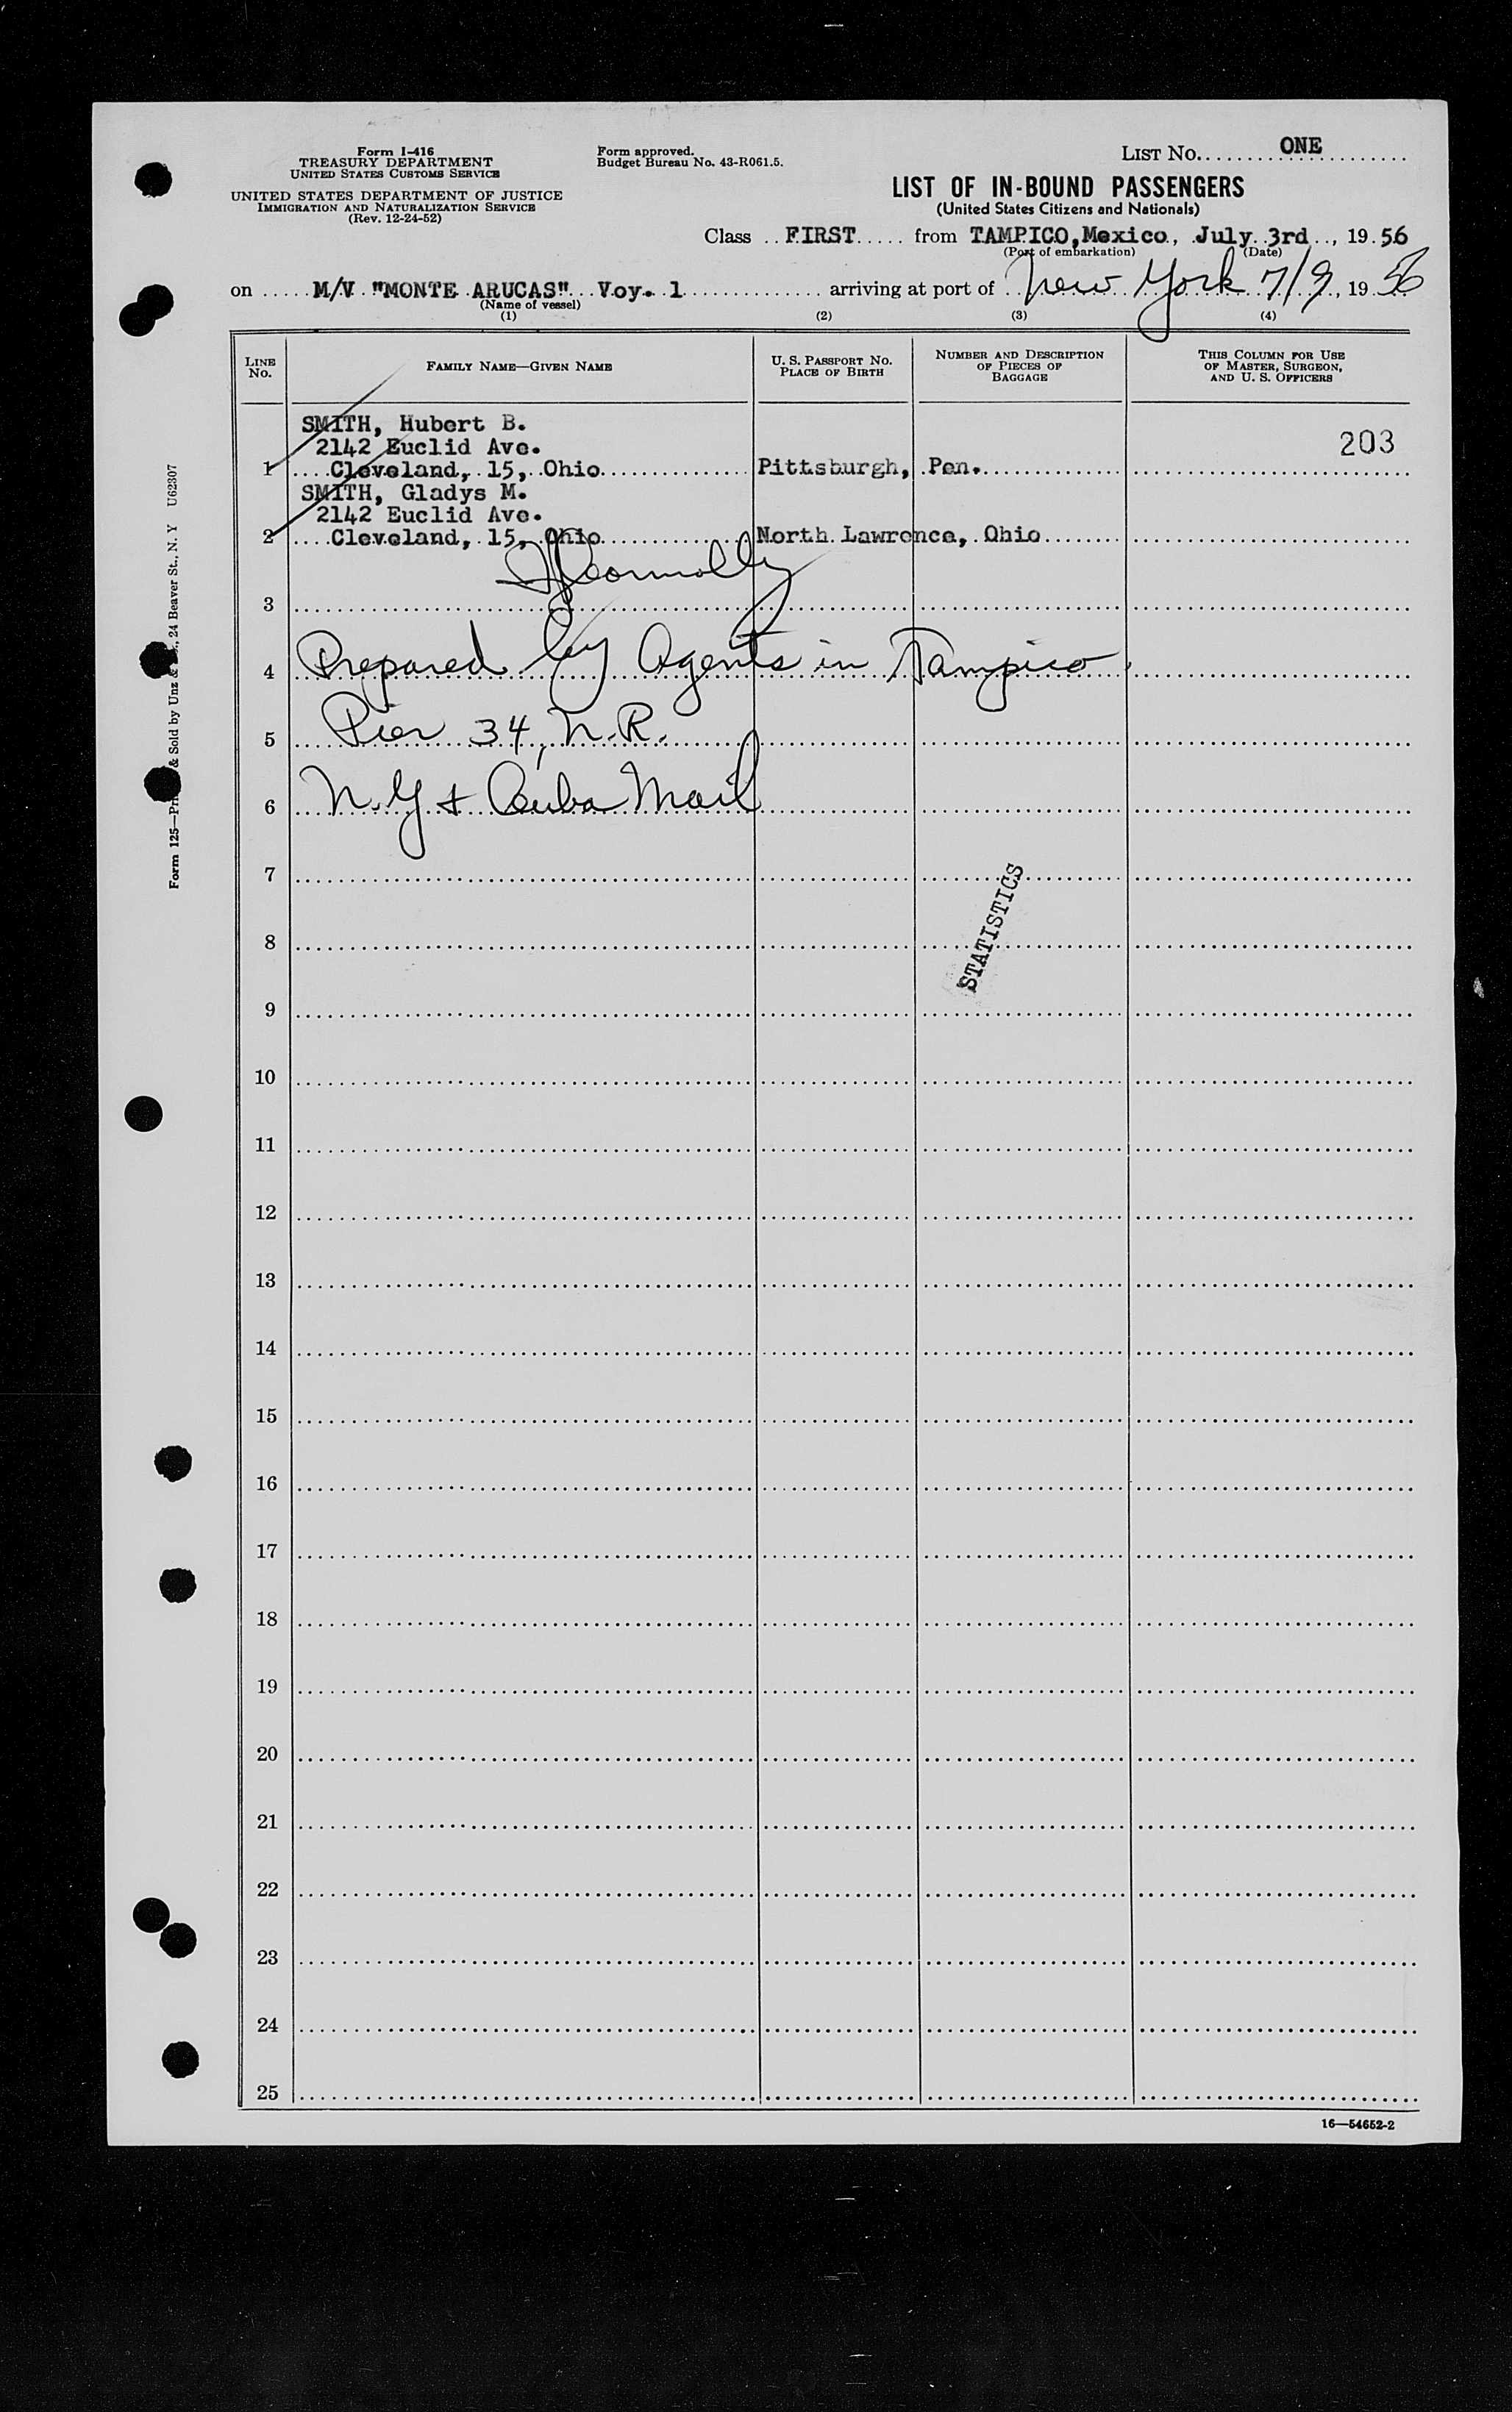 Form I-416
TREASURY DEPARTMENT
UNITED STATES CUSTOMS SERVICE
UNITED STATES DEPARTMENT OF JUSTICE
IMMIGRATION AND NATURALIZATION SERVICE
(Rev. 12-24-52)
Form approved.
Budget Bureau No. 43-R061.5.
LIST No. ONE
LIST OF IN-BOUND PASSENGERS
(United States Citizens and Nationals)
Class FIRST from TAMPICO, Mexico, July 3rd, 1956
(Port of embarkation) (Date)
on M/V "MONTE ARUCAS" Voy. 1 arriving at port of New York 7/9, 1956
(Name of vessel)
(1) (2) (3) (4)
LINE No.
FAMILY NAME—GIVEN NAME
U. S. PASSPORT NO. PLACE OF BIRTH
NUMBER AND DESCRIPTION OF PIECES OF BAGGAGE
THIS COLUMN FOR USE OF MASTER, SURGEON, AND U. S. OFFICERS
SMITH, Hubert B.
2142 Euclid Ave.
203
1 Cleveland, 15, Ohio Pittsburgh, Pen.
SMITH, Gladys M.
2142 Euclid Ave.
2 Cleveland, 15, Ohio North Lawrence, Ohio
Connolly
3
4 Prepared by Agents in Tampico
5 Pier 34, N.R.
6 N.Y & Cuba Mail
7
STATISTICS
8
9
10
11
12
13
14
15
16
17
18
19
20
21
22
23
24
25
16—54652-2
Form 125—Pri & Sold by Unz & , 24 Beaver St., N. Y U62307